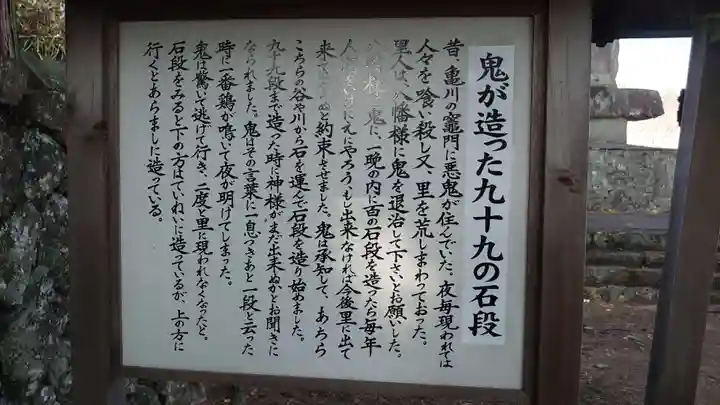 鬼が造った九十九の石段
昔、亀川の竈門に悪鬼が住んでいた。夜毎現われては
人々を喰い殺し又、里を荒しまわっておった。
里人は、八幡様に鬼を退治して下さいとお願いした。
様は鬼に、一晩の内に百の石段を造ったら毎年
人間をいけにえにやろう、もし出来なければ今後里に出て
来ぬと約束させました。鬼は承知して、あちら
こちらの谷や川から石を運んで石段を造り始めました。
九十九段まで造った時に神様がまだ出来ぬかとお聞きに
なられました。鬼はその言葉に一息つきあと一段と云った
時に一番鶏が鳴いて夜が明けてしまった。
鬼は驚いて逃げて行き、二度と里に現われなくなったと。
石段をみると下の方はていねいに造っているが、上の方に
行くとあらましに造っている。